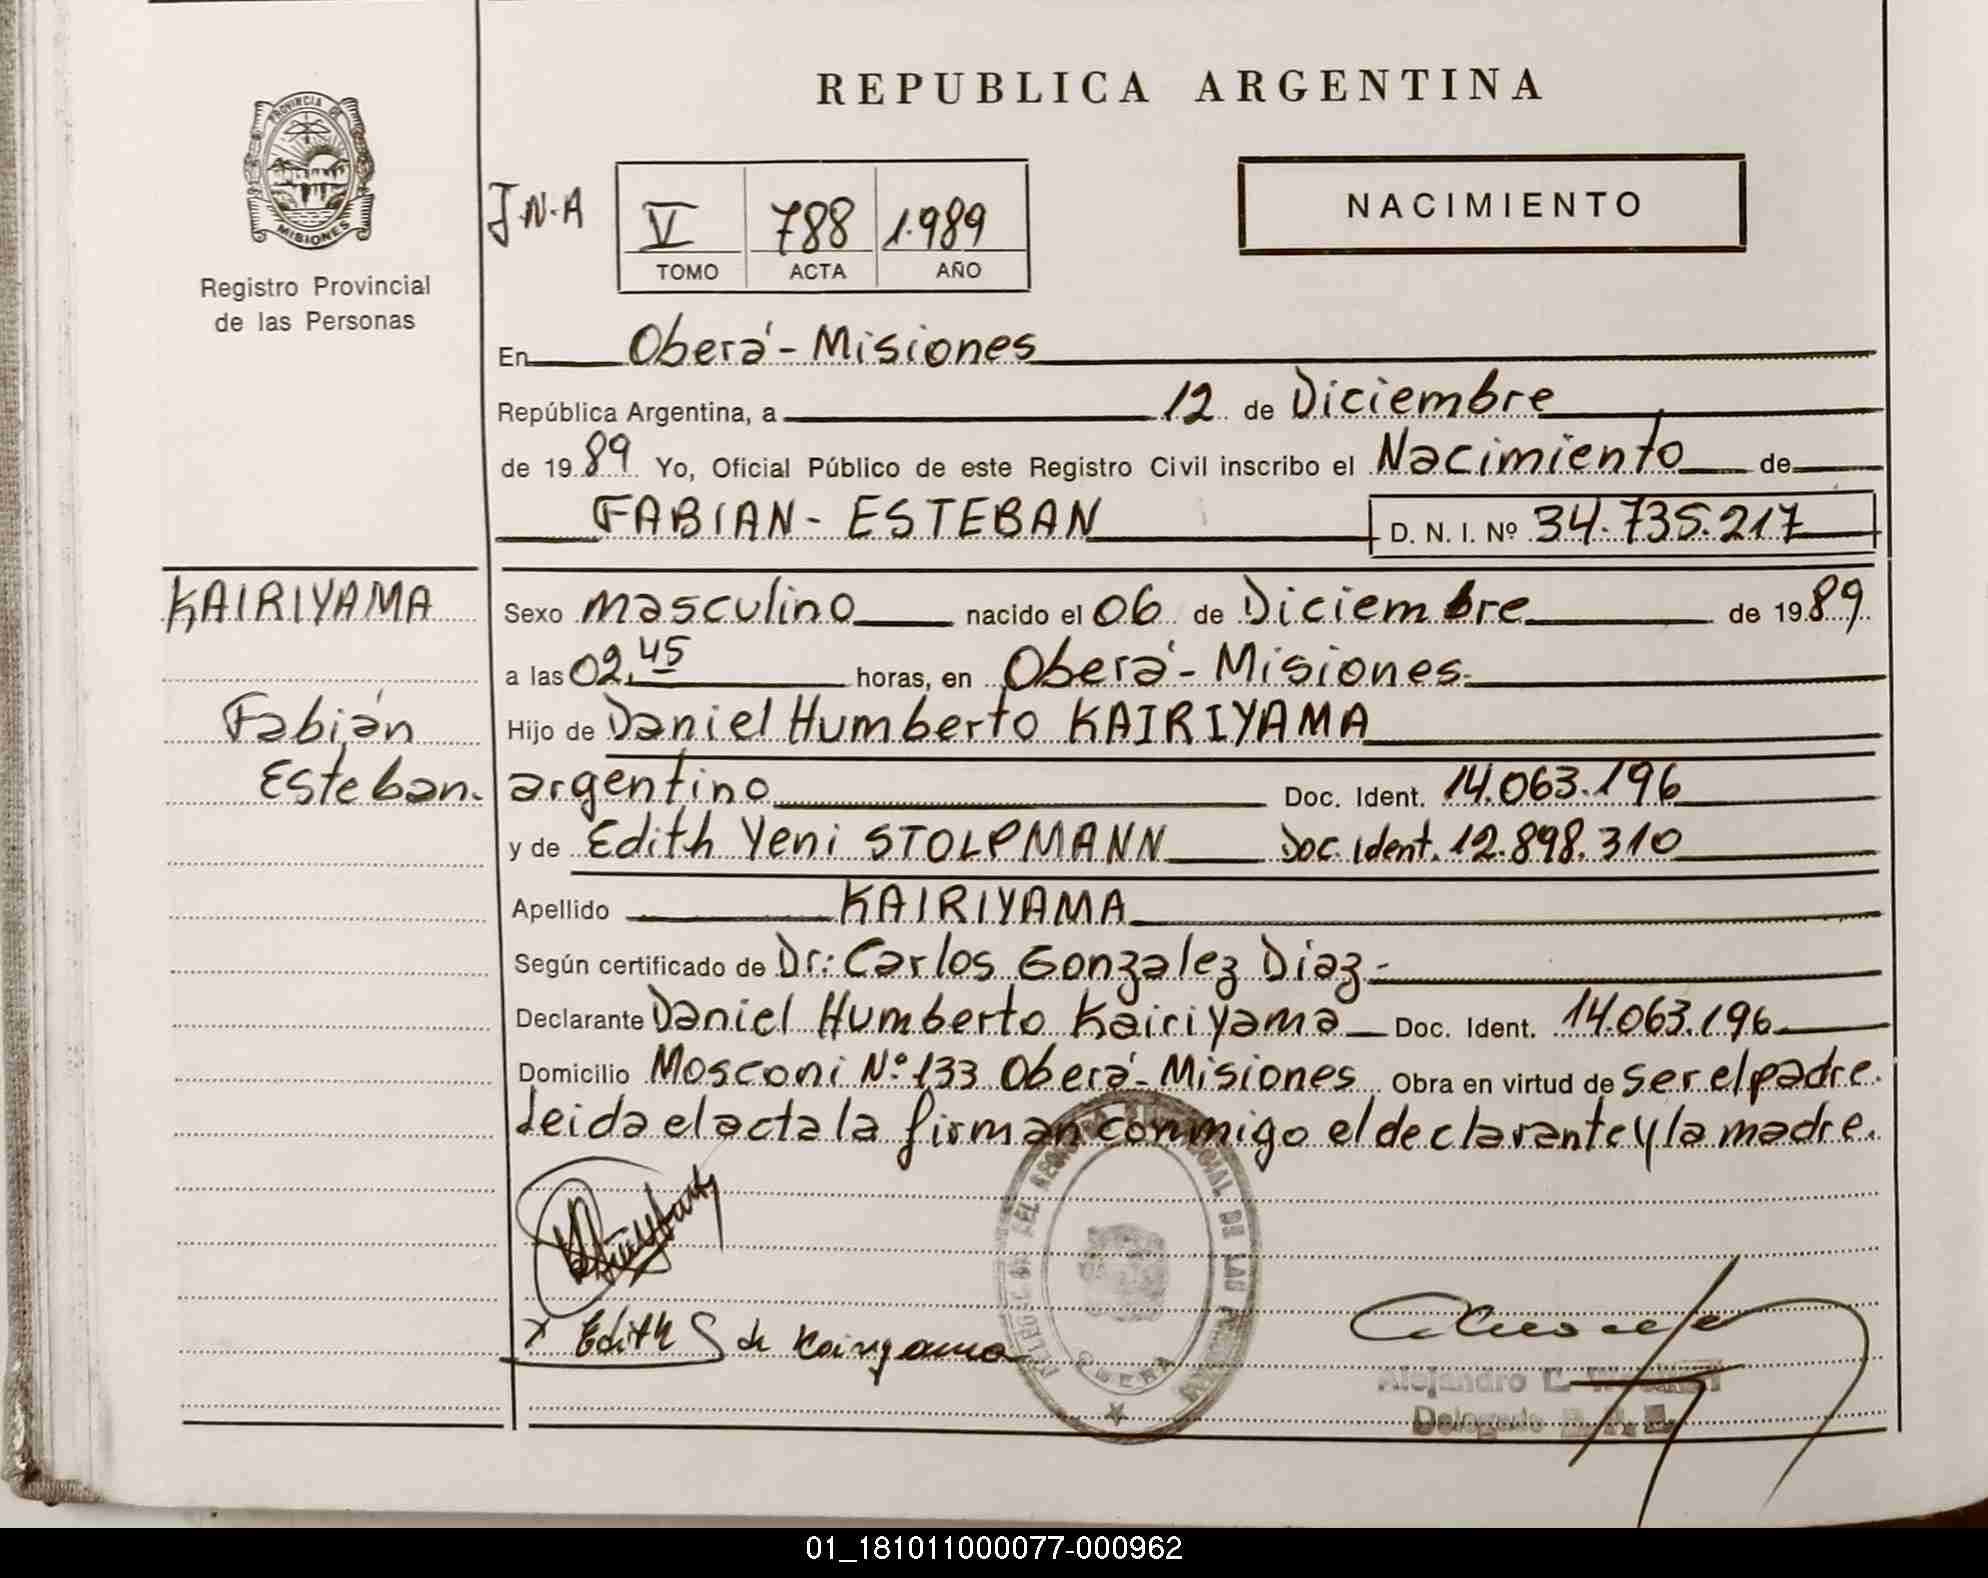 REPUBLICA ARGENTINA
PROVINCIA DE
MISIONES
Registro Provincial
de las Personas
J.N.A
V 788 1.989
TOMO ACTA AÑO
NACIMIENTO
En Oberá - Misiones
República Argentina, a 12 de Diciembre
de 19 89 Yo, Oficial Público de este Registro Civil inscribo el Nacimiento de
FABIAN - ESTEBAN D. N. I. Nº 34.735.217
KAIRIYAMA
Fabián
Esteban.
Sexo masculino nacido el 06 de Diciembre de 19 89
a las 02,45 horas, en Oberá - Misiones.
Hijo de Daniel Humberto KAIRIYAMA
argentino Doc. Ident. 14.063.196
y de Edith Yeni STOLPMANN Doc. Ident. 12.898.310
Apellido KAIRIYAMA
Según certificado de Dr: Carlos Gonzalez Diaz -
Declarante Daniel Humberto Kairiyama Doc. Ident. 14.063.196
Domicilio Mosconi Nº 133 Oberá - Misiones Obra en virtud de ser el padre.
Leida el acta la firman conmigo el declarante y la madre.
x Edith S de Kairiyama
OBERA
Alejandro E.
Delegado
01_181011000077-000962